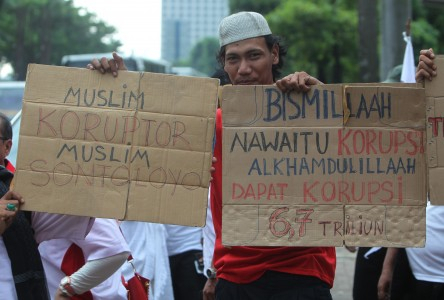 MUSLIM
KORUPTOR
MUSLIM
SONTOLOYO
BISMILLAAH
NAWAITU KORUPSI
ALKHAMDULILLAAH
DAPAT KORUPSI
6,7 TRILIUN